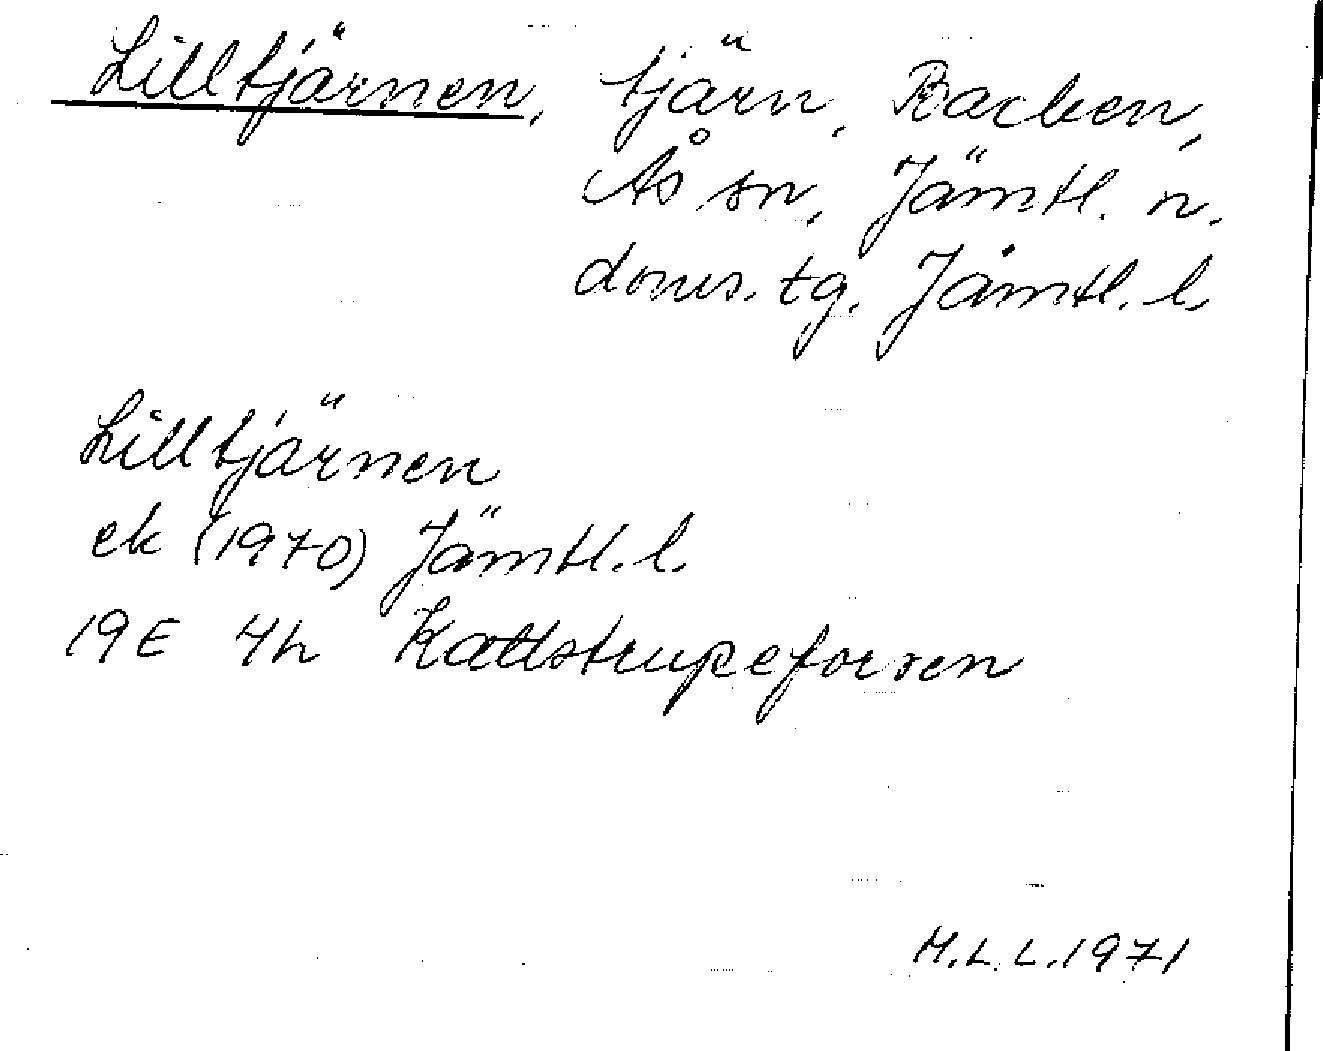 Lilltjärnen, tjärn, Backen,
Ås sn, Jämtl. n.
doms. tg. Jämtl. l.
Lilltjärnen
ek (1970) Jämtl. l.
19E 4h Kattstrupeforsen
M.L.L. 1971